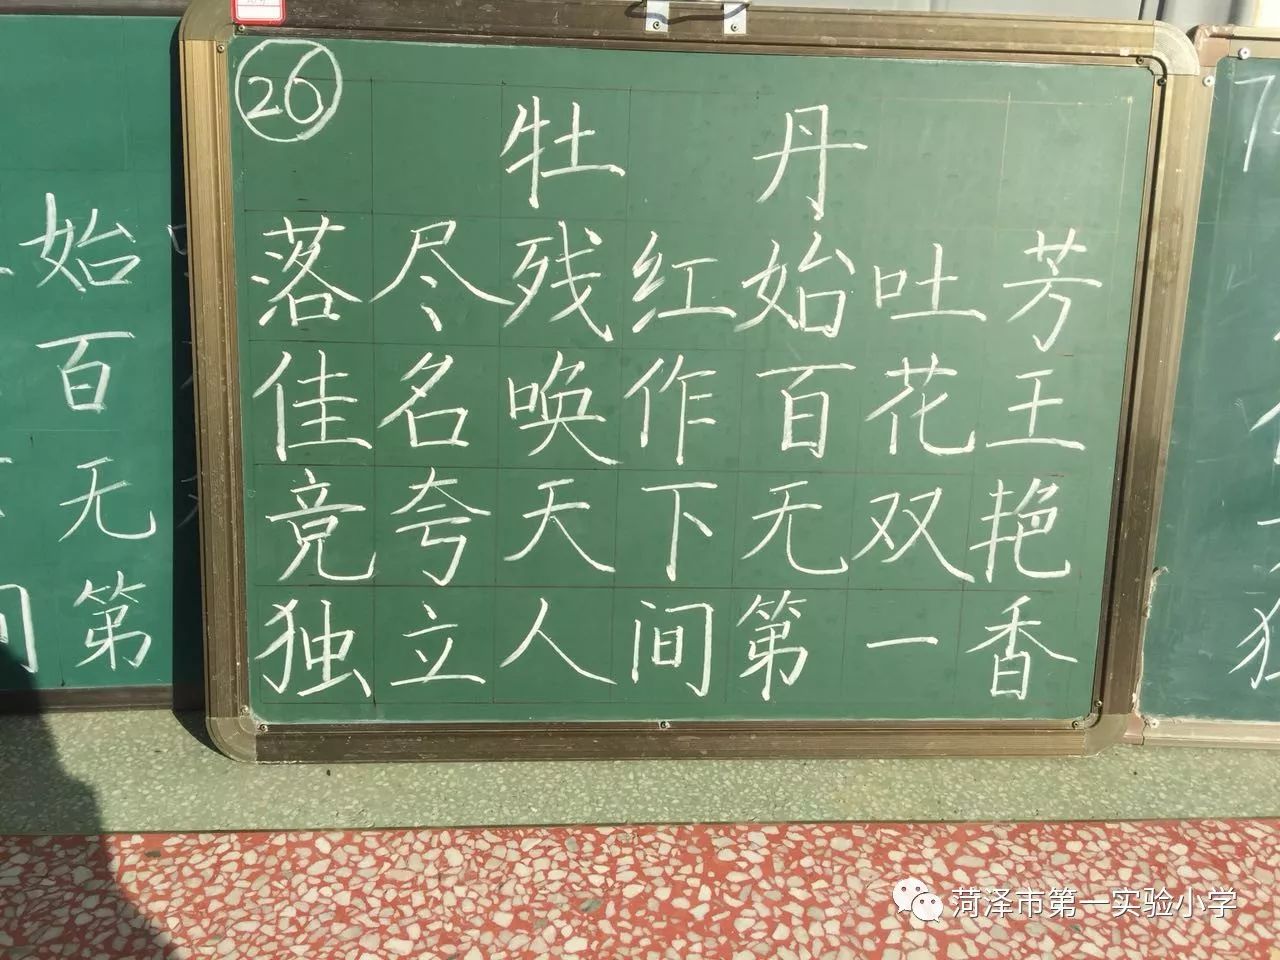 26
牡丹
落尽残红始吐芳
佳名唤作百花王
竟夸天下无双艳
独立人间第一香
始
百
无
第
菏泽市第一实验小学